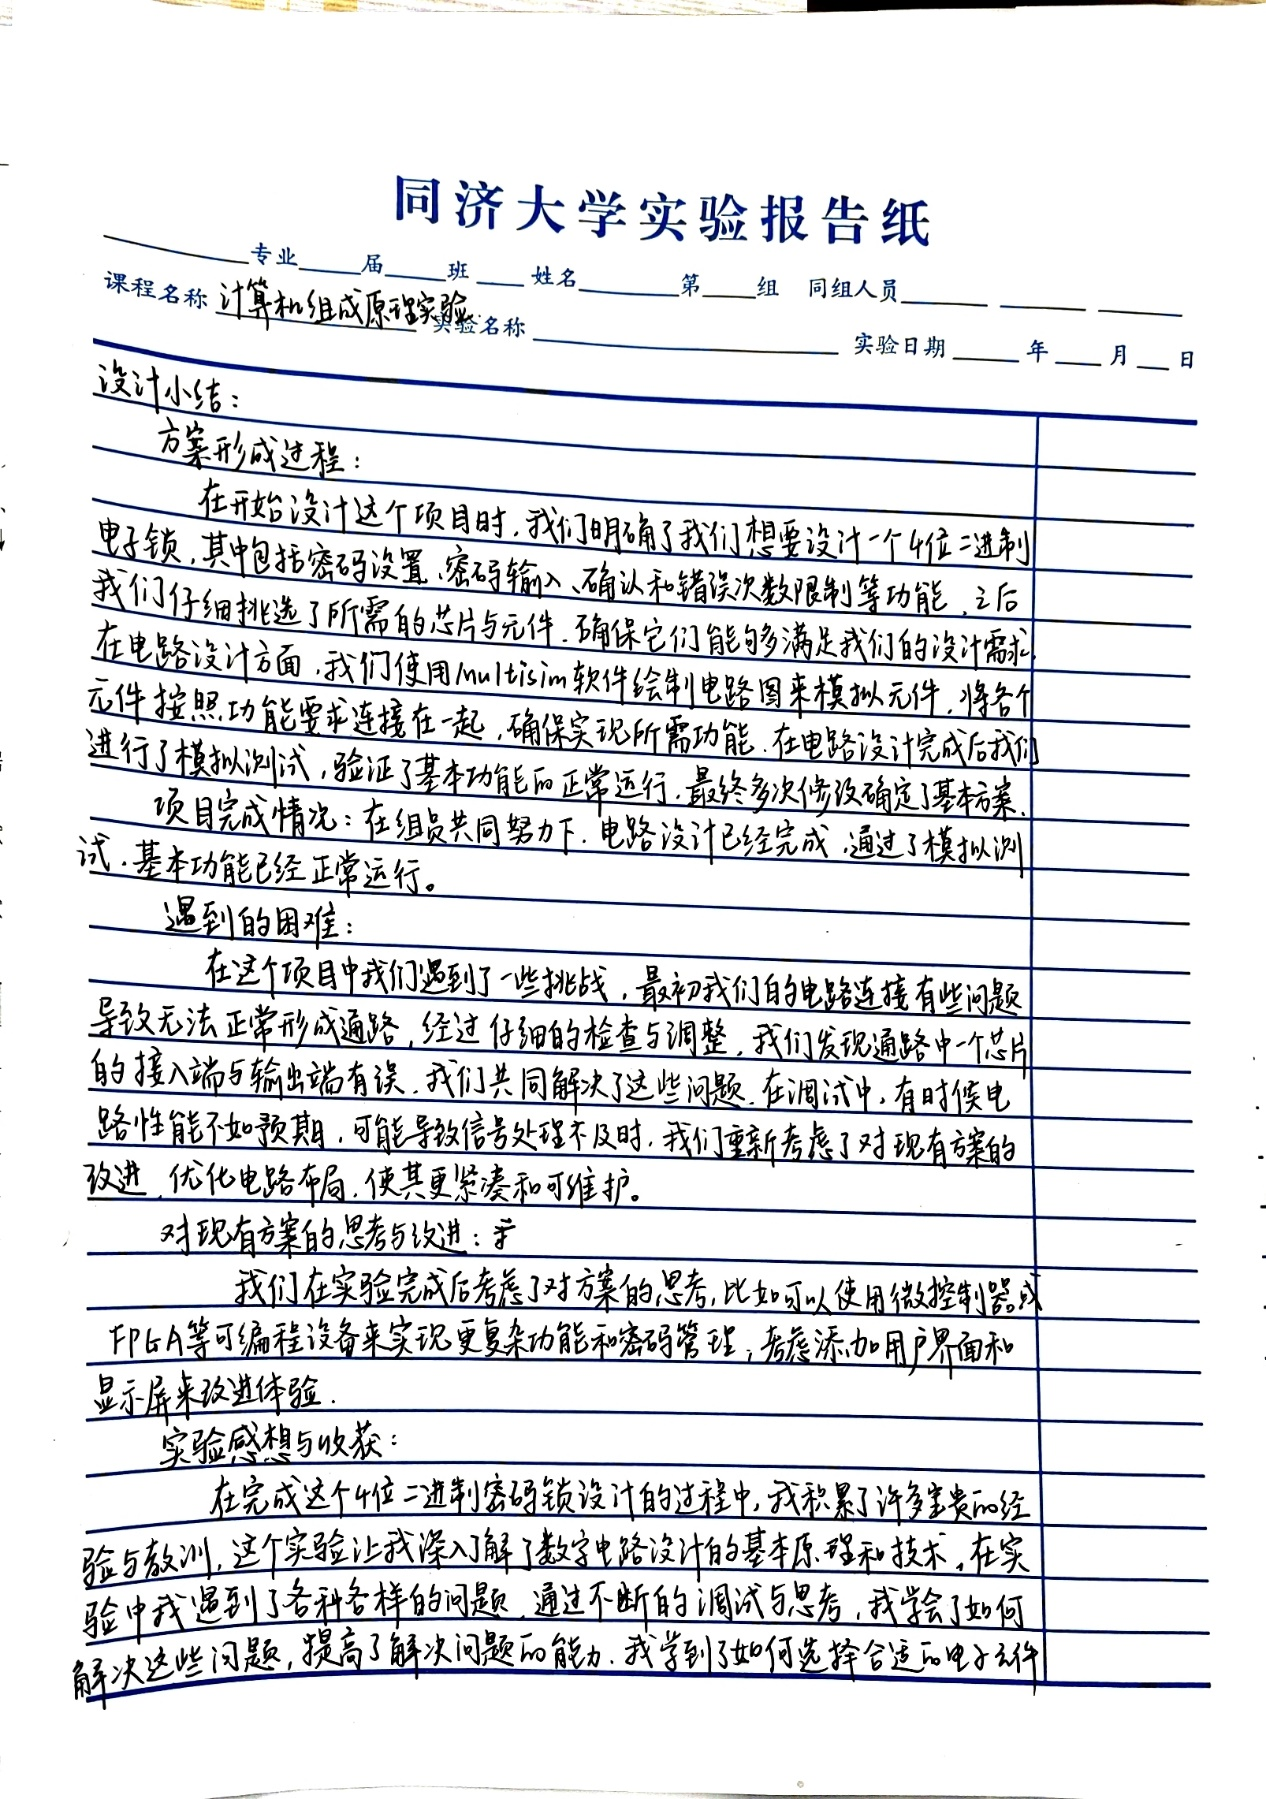 同济大学实验报告纸
专业 届 班 姓名 第 组 同组人员
课程名称 计算机组成原理实验 实验名称 实验日期 年 月 日
设计小结：
方案形成过程：
在开始设计这个项目时，我们明确了我们想要设计一个4位二进制
电子锁，其中包括密码设置、密码输入、确认和错误次数限制等功能，之后
我们仔细挑选了所需的芯片与元件，确保它们能够多满足我们的设计需求，
在电路设计方面，我们使用Multisim软件绘制电路图来模拟元件，将各个
元件按照功能要求连接在一起，确保实现所需功能．在电路设计完成后我们
进行了模拟测试，验证了基本功能的正常运行．最终多次修改确定了基本方案．
项目完成情况：在组员共同努力下．电路设计已经完成，通过了模拟测
试．基本功能已经正常运行。
遇到的困难：
在这个项目中我们遇到了一些挑战，最初我们的电路连接有些问题
导致无法正常形成通路，经过仔细的检查与调整，我们发现通路中一个芯片
的接入端与输出端有误．我们共同解决了这些问题．在调试中，有时候电
路性能不如预期，可能导致信号处理不及时．我们重新考虑了对现有方案的
改进，优化电路布局，使其更紧凑和可维护。
对现有方案的思考与改进：
我们在实验完成后考虑了对方案的思考，比如可以使用微控制器或
FPGA等可编程设备来实现更复杂功能和密码管理，考虑添加用户界面和
显示屏来改进体验．
实验感想与收获：
在完成这个4位二进制密码锁设计的过程中，我积累了许多宝贵的经
验与教训，这个实验让我深入了解了数字电路设计的基本原理和技术。在实
验中我遇到了各种各样的问题，通过不断的调试与思考，我学会了如何
解决这些问题，提高了解决问题的能力．我学到了如何选择合适的电子元件